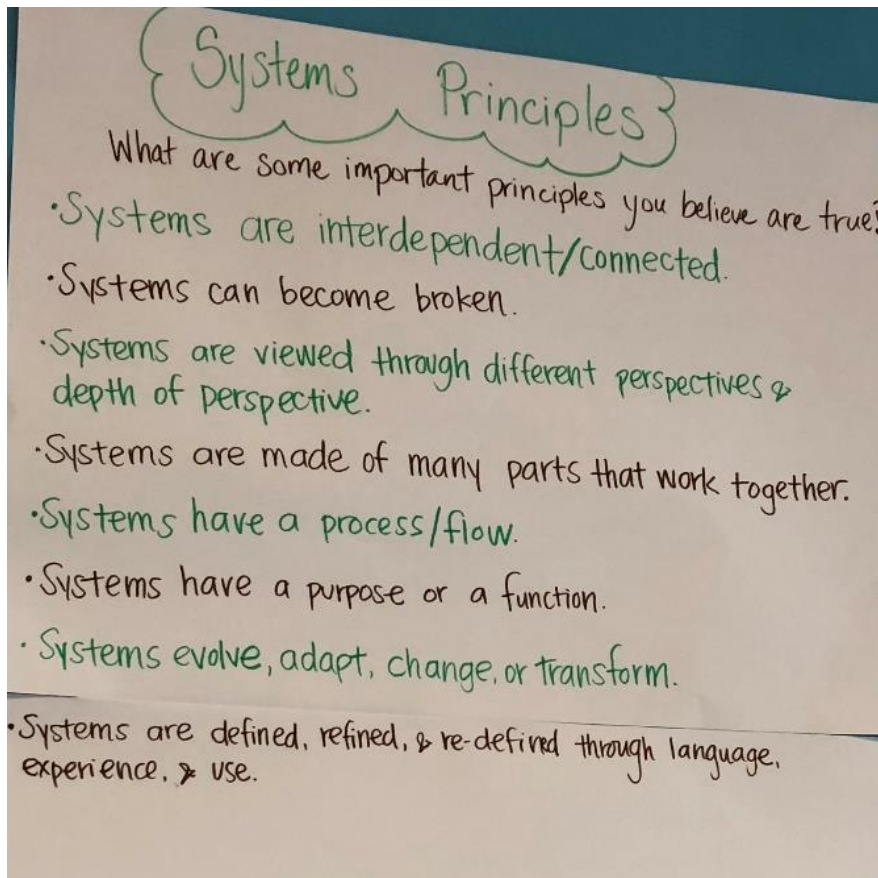 Systems Principles
What are some important principles you believe are true?
·Systems are interdependent/connected.
·Systems can become broken.
·Systems are viewed through different perspectives &
depth of perspective.
·Systems are made of many parts that work together.
·Systems have a process/flow.
·Systems have a purpose or a function.
·Systems evolve, adapt, change, or transform.
·Systems are defined, refined, & re-defined through language,
experience, & use.